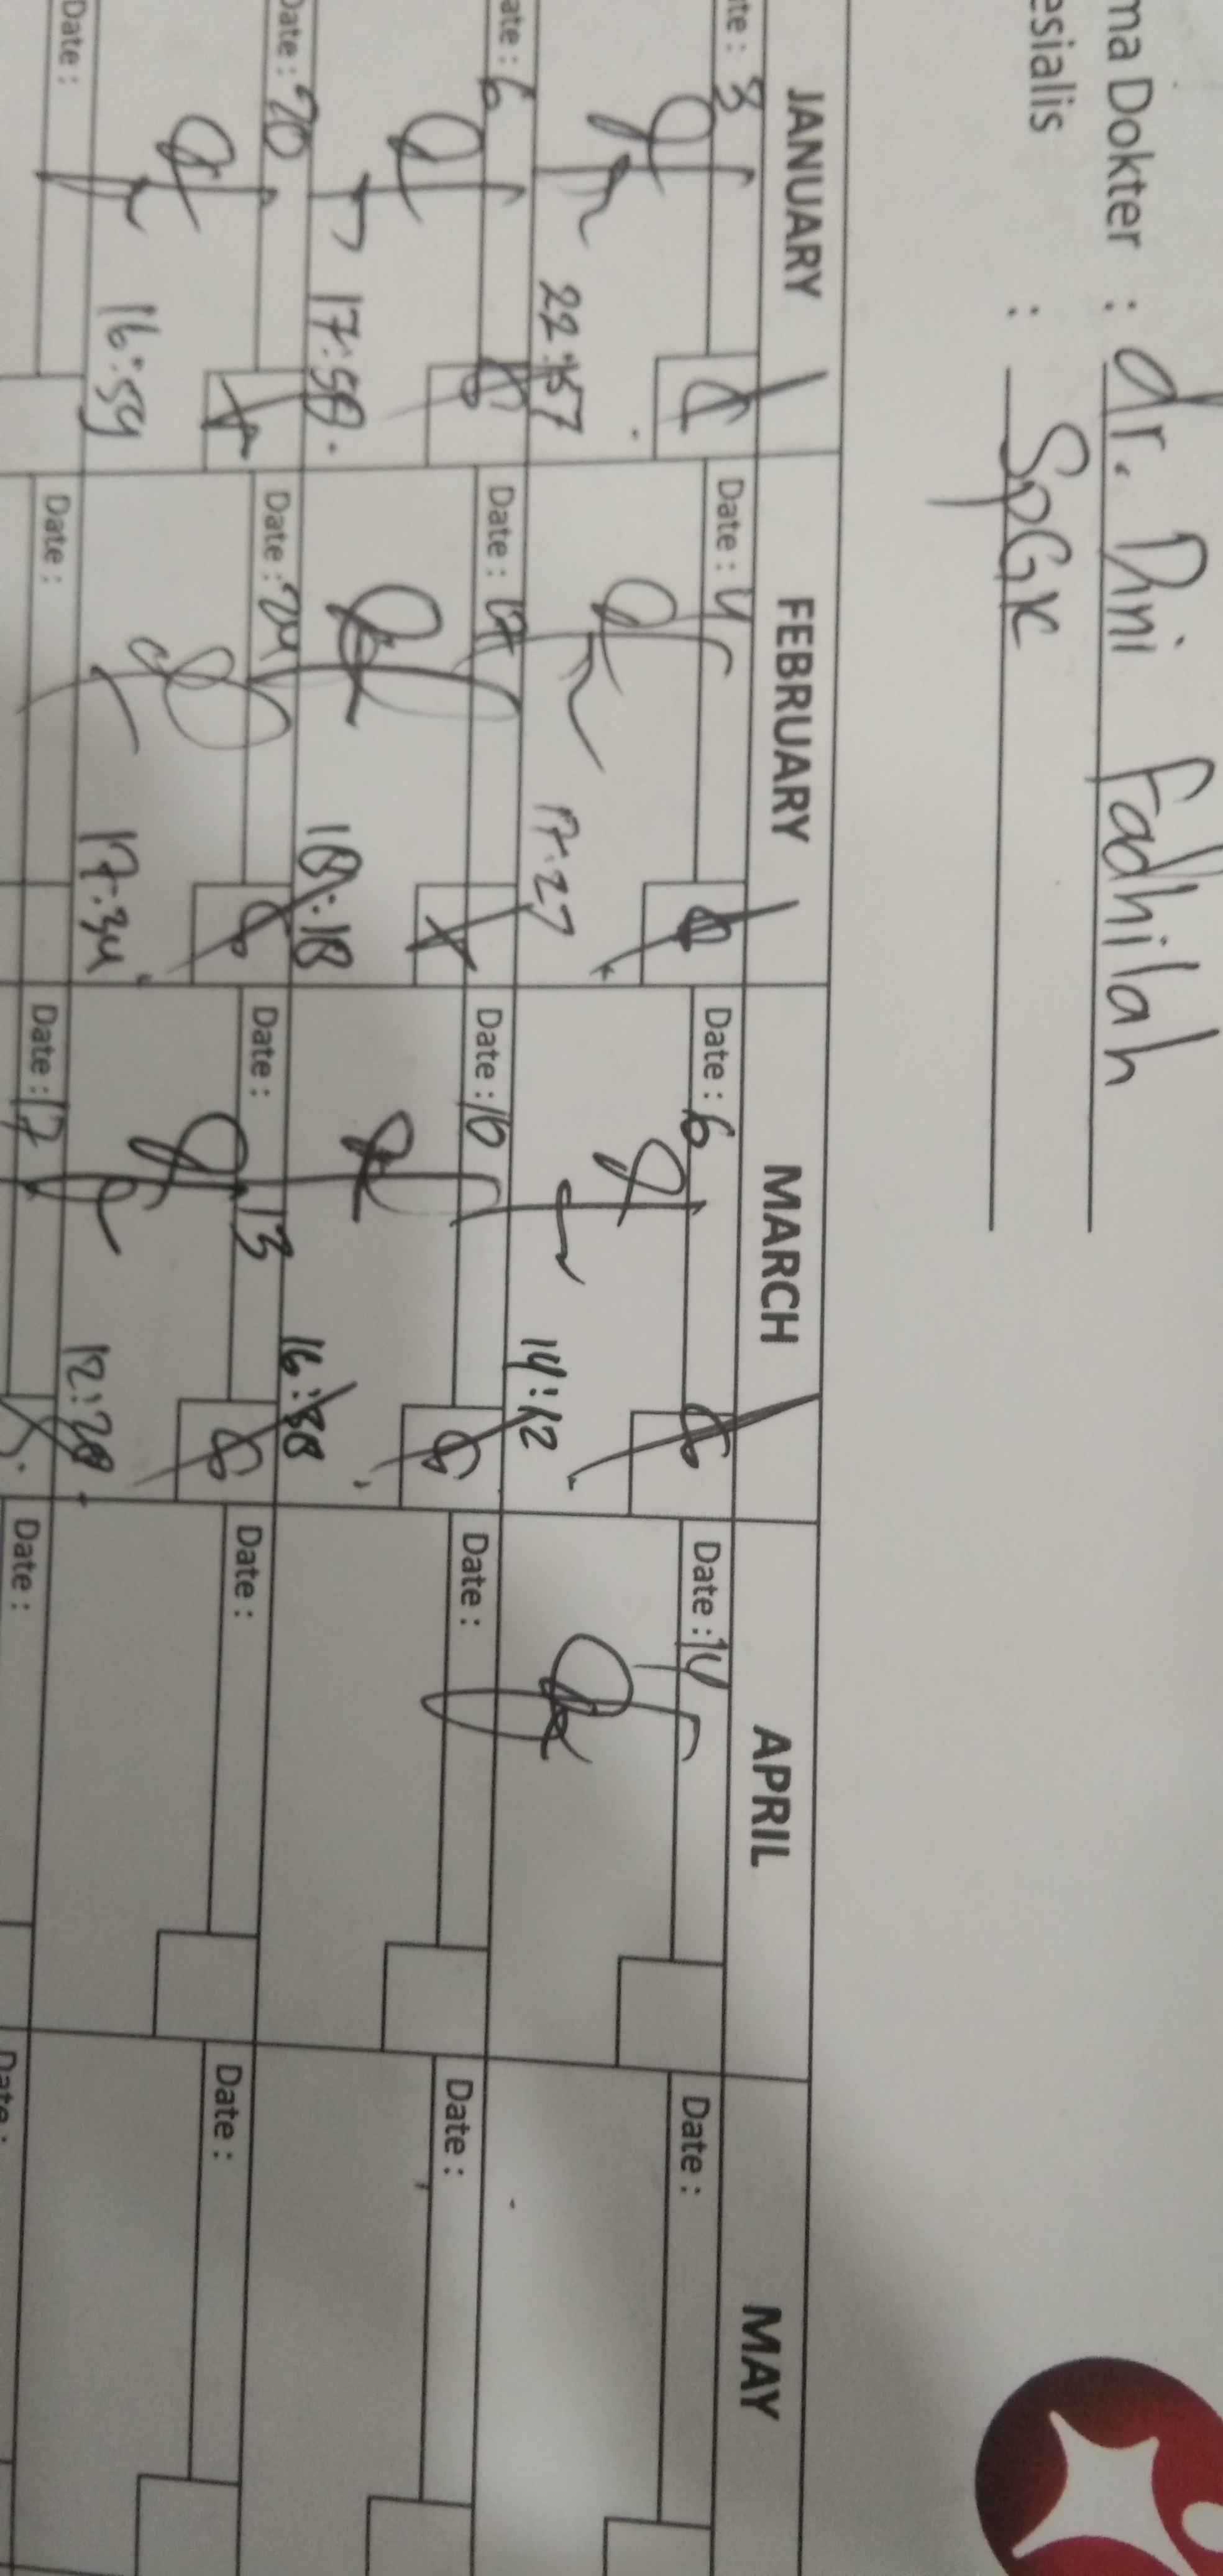 ma Dokter : dr. Dini Fadhilah
esialis : SpGK
JANUARY FEBRUARY MARCH APRIL MAY
te : 3 Date : 4 Date : 6 Date : 14 Date :
22:57 17:27 14:12
ate : 6 Date : 17 Date : 10 Date : Date :
17:58 18:18 16:38
Date : 20 Date : 24 Date : 13 Date : Date :
16:59 17:34 12:28
Date : Date : Date : 17 Date : Date :